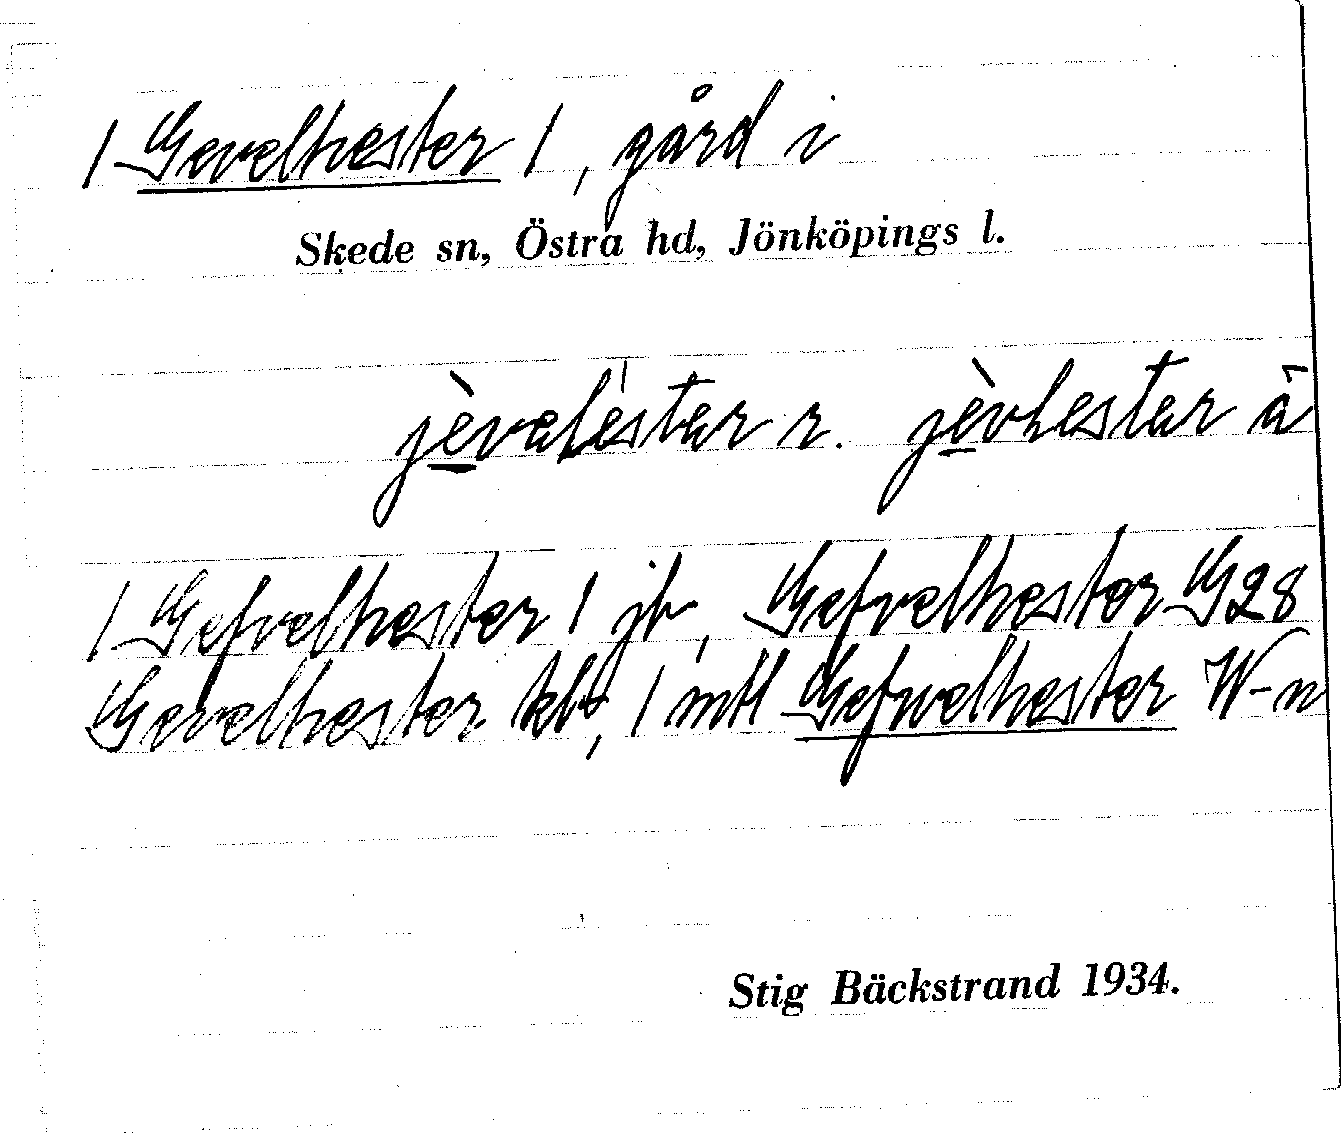 / Gevelhester /, gård i
Skede sn, Östra hd, Jönköpings l.
jèvəlès'tər r. jèvhestər ä
/ Gefvelhester / jb, Gefvelhester G28
Gevelhester kbr, / mtl Gefwelhester W-n
Stig Bäckstrand 1934.